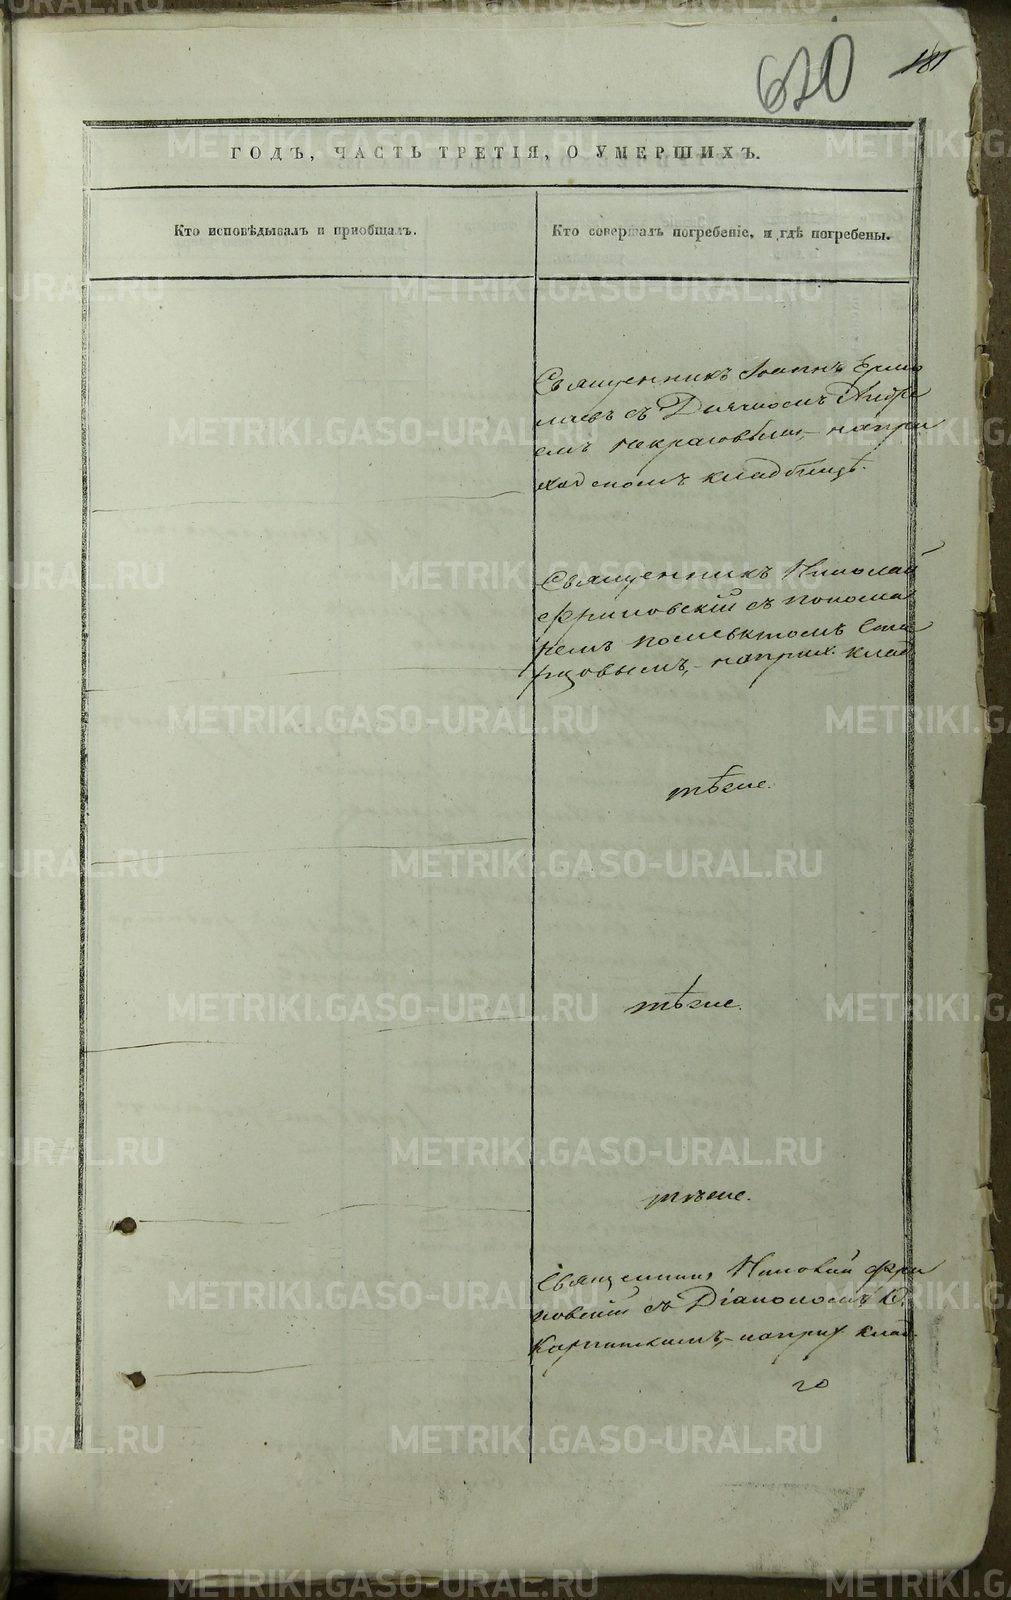 620
181
ГОДЪ, ЧАСТЬ ТРЕТІЯ, О УМЕРШИХЪ.
Кто исповѣдывалъ и пріобщалъ.
Кто совершалъ погребеніе, и гдѣ погребены.
Священникъ Іоаннъ Ермо
лаевъ съ Дьячкомъ Андре
емъ Некрасовымъ, на при
ходскомъ кладбищѣ.
Священникъ Николай
съ понома
ремъ
на прих. клад
тѣже.
тѣже.
тѣже.
Священникъ Николай
съ Діакономъ
на прих клад.
METRIKI.GASO-URAL.RU